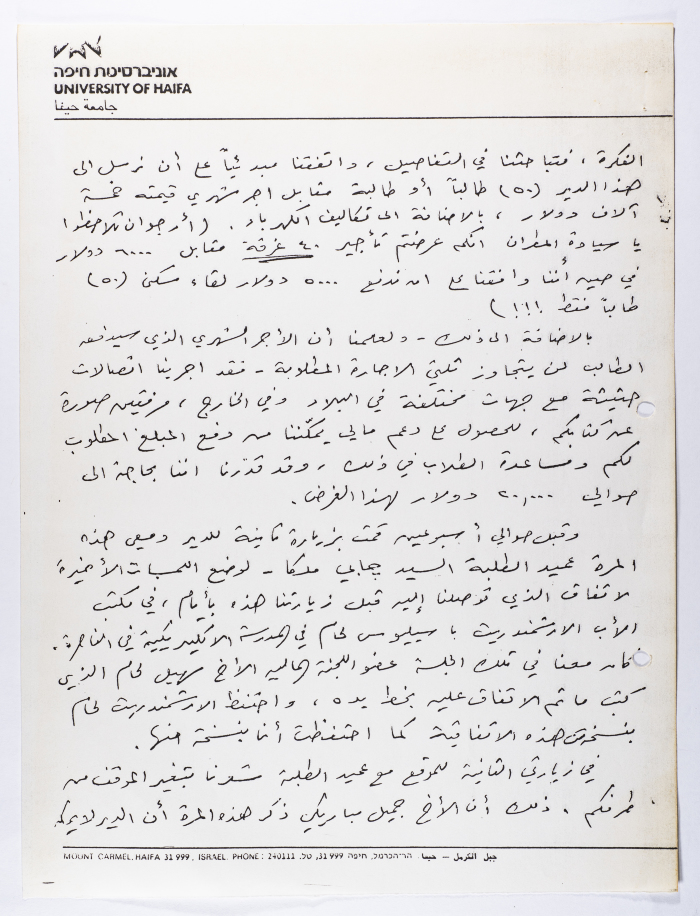 אוניברסיטת חיפה
UNIVERSITY OF HAIFA
جامعة حيفا
الفكرة ، فتباحثنا في التفاصيل ، واتفقنا مبدئياً على أن نرسل الى
هذا الدير (٥٠) طالباً أو طالبة مقابل اجر شهري قيمته خمسة
آلاف دولار ، بالاضافة الى تكاليف الكهرباء . (أرجو ان تلاحظوا
يا سيادة المطران انكم عرضتم تأجير ٤٠ غرفة مقابل ٦٠٠٠ دولار
في حين أننا وافقنا على ان ندفع ٥٠٠٠ دولار لقاء سكن (٥٠)
طالباً فقط !!!)
بالاضافة الى ذلك - ولعلمنا أن الأجر الشهري الذي سيدفعه
الطالب لن يتجاوز ثلثي الاجارة المطلوبة - فقد اجرينا اتصالات
حثيثة مع جهات مختلفة في البلاد وفي الخارج ، مرفقين صورة
عن كتابكم ، للحصول على دعم مالي يمكّننا من دفع المبلغ المطلوب
لكم ومساعدة الطلاب في ذلك ، وقد قدّرنا اننا بحاجة الى
حوالي ٢٠,٠٠٠ دولار لهذا الغرض .
وقبل حوالي أسبوعين قمت بزيارة ثانية للدير ومعي هذه
المرة عميد الطلبة السيد جابي - لوضع اللمسات الأخيرة
لاتفاق الذي توصلنا إليه قبل زيارتنا هذه بأيام ، في مكتب
الأب الارشمندريت باسيليوس لحام في المدرسة الاكليريكية في الناصرة .
كان معنا في تلك الجلسة عضو اللجنة المالية الأخ سهيل لحام الذي
كتب ما تم الاتفاق عليه بخط يده ، واحتفظ الارشمندريت لحام
بنسخة من هذه الاتفاقية كما احتفظت أنا بنسخة منها .
في زيارتي الثانية للموقع مع عميد الطلبة شعرنا بتغير الموقف من
طرفكم . ذلك أن الأخ جميل ذكر هذه المرة أن الدير لا
MOUNT CARMEL, HAIFA 31 999, ISRAEL. PHONE: 240111 .הר-הכרמל, חיפה 31999, טל جبل الكرمل – حيفا